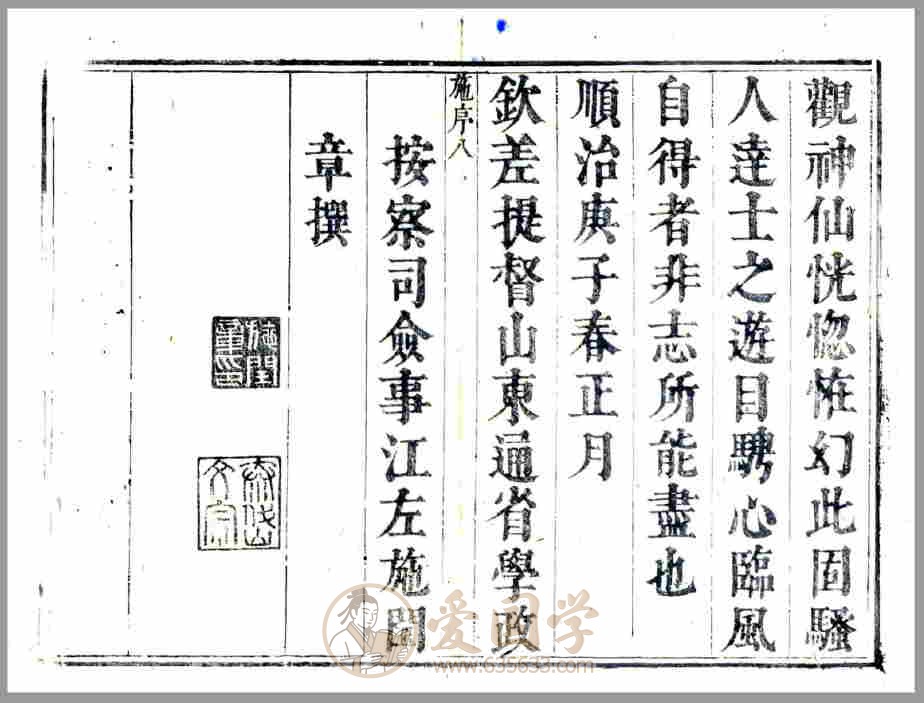 觀神仙恍惚恠幻此固騷
人達士之遊目騁心臨風
自得者非志所能盡也
順治庚子春正月
欽差提督山東通省學政
施序八
按察司僉事江左施閏
章撰
施閏章印
泰岱山文宗
爱国学
www.635633.com